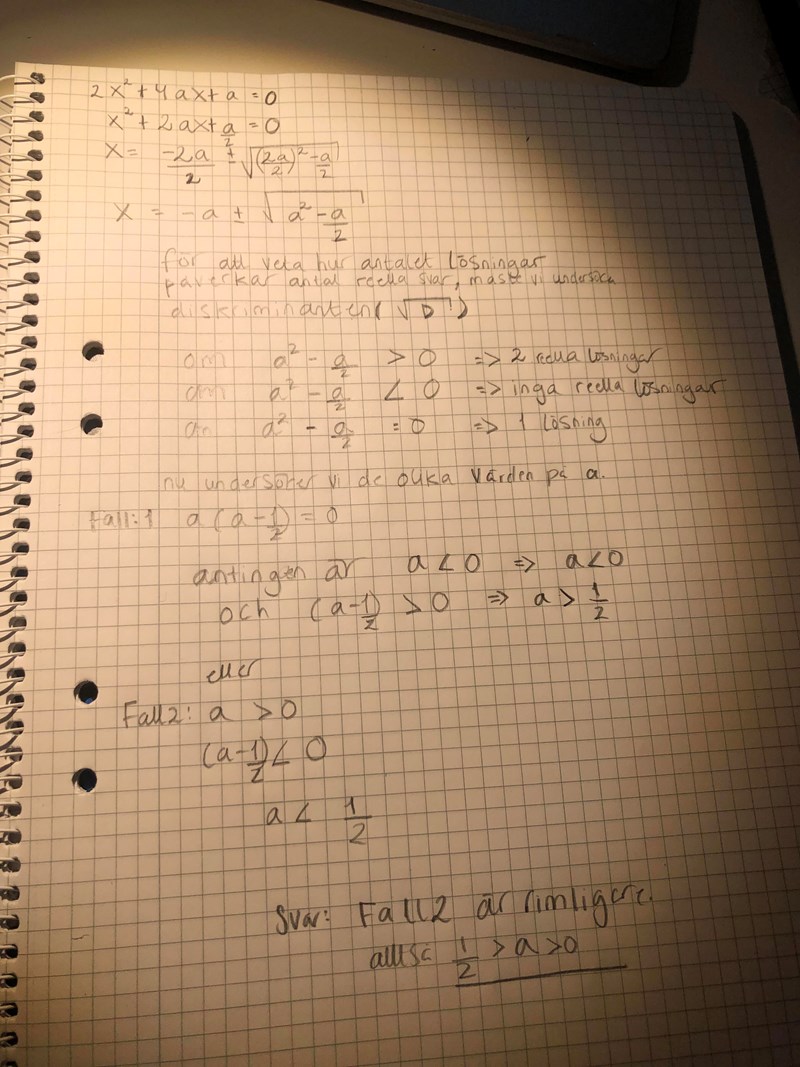 2x² + 4ax + a = 0
x² + 2ax + a/2 = 0
x = -2a/2 ± √((2a/2)² - a/2)
x = -a ± √(a² - a/2)
för att veta hur antalet lösningar
påverkar antal reella svar, måste vi undersöka
diskriminanten (√D)
om a² - a/2 > 0 => 2 reella lösningar
om a² - a/2 < 0 => inga reella lösningar
om a² - a/2 = 0 => 1 lösning
nu undersöker vi de olika värden på a.
Fall:1 a(a - 1/2) = 0
antingen är a < 0 => a < 0
och (a - 1/2) > 0 => a > 1/2
eller
Fall2: a > 0
(a - 1/2) < 0
a < 1/2
Svar: Fall 2 är rimligare.
alltså 1/2 > a > 0